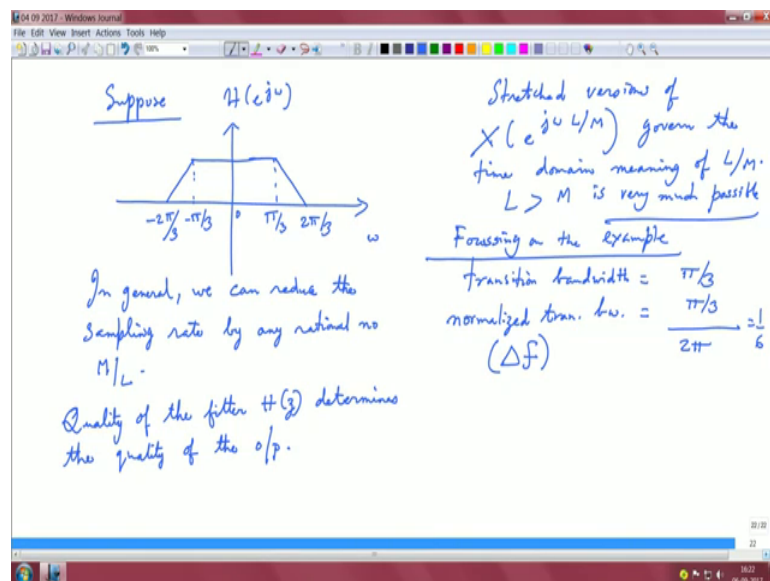 04 09 2017 - Windows Journal
File Edit View Insert Actions Tools Help
100%
Suppose H(e^{jω})
-2π/3 -π/3 0 π/3 2π/3
ω
In general, we can reduce the
sampling rate by any rational no
M/L.
Quality of the filter H(z) determines
the quality of the o/p.
Stretched versions of
X(e^{jω L/M}) govern the
time domain meaning of L/M.
L > M is very much possible
Focussing on the example
transition bandwidth = π/3
normalized tran. bw. = π/3 / 2π = 1/6
(Δf)
22/22
22
16:22